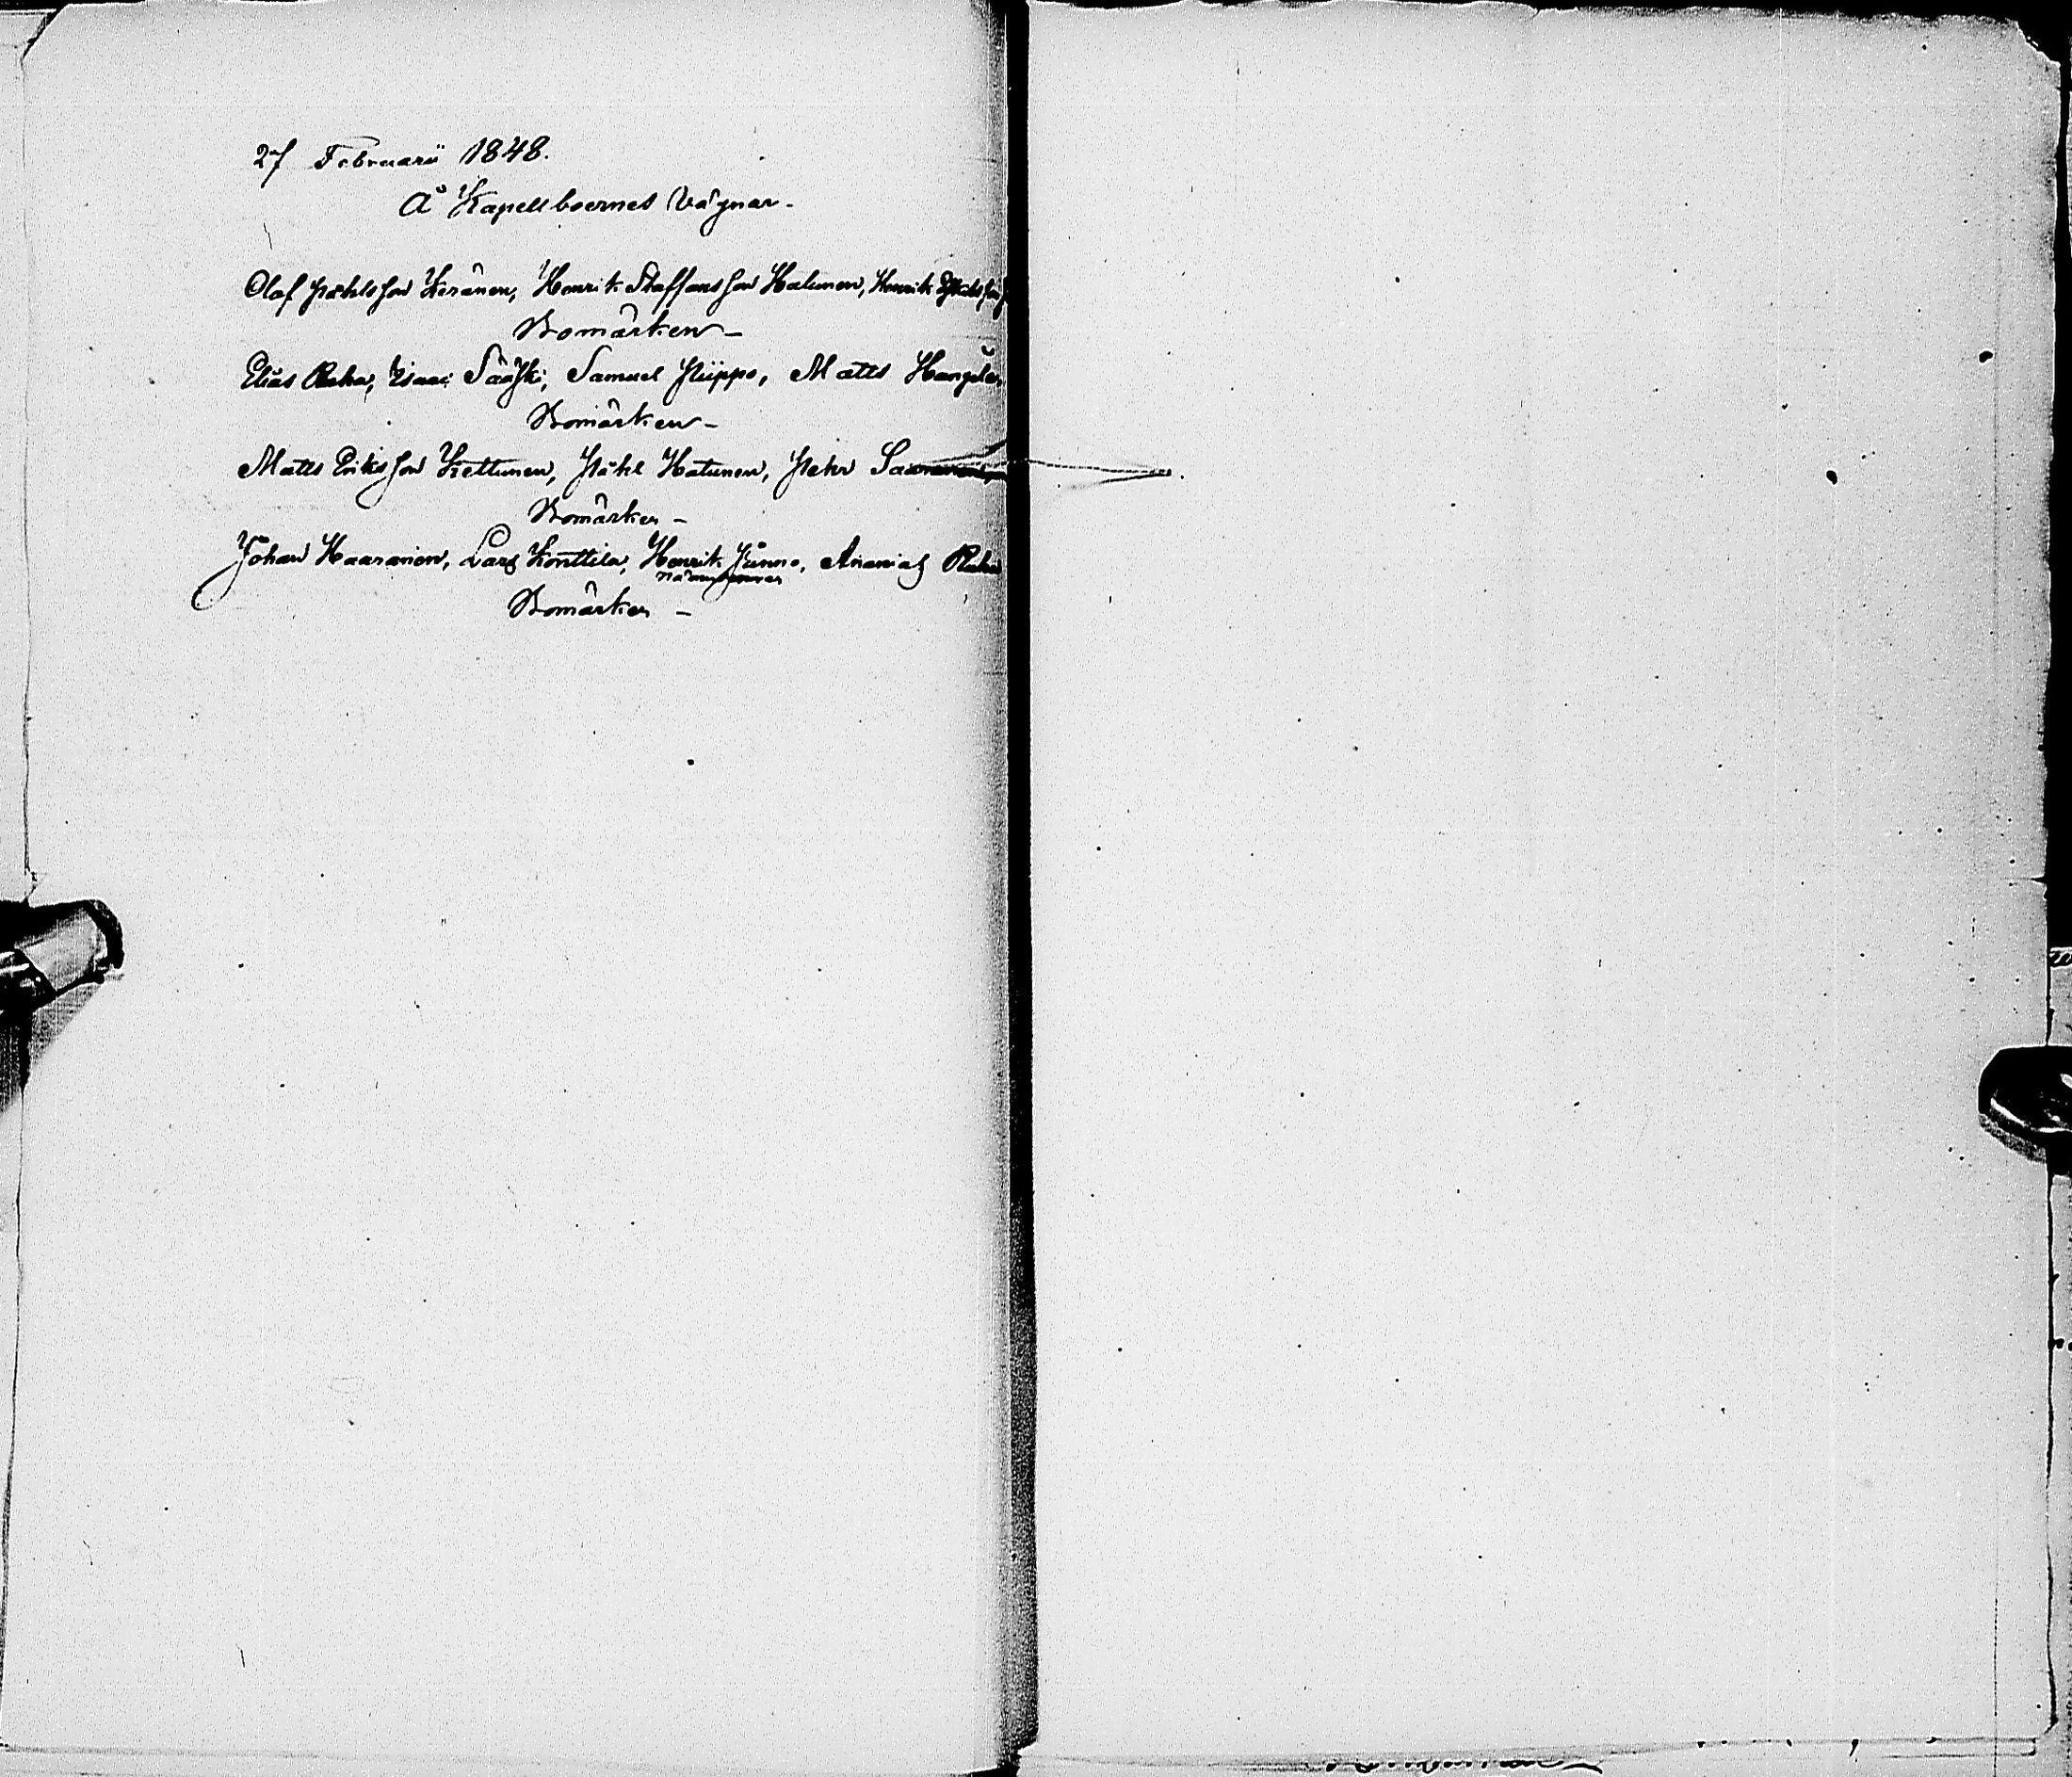 27 Februarii 1848.
Å Kapellboernes Vägnar.
Olof Påhlsson Keränen, Henrik Staffansson Halunen, Henrik
Bomärken
Elias Ruha, Isaac Sääski, Samuel Piippo, Matts
Bomärken
Matts Eriksson Kettunen, Påhl Hatunen, Pehr
Bomärken
Johan Haaranen, Lars Konttila, Henrik Junno, Ananias Ruha
nämndeman
Bomärken